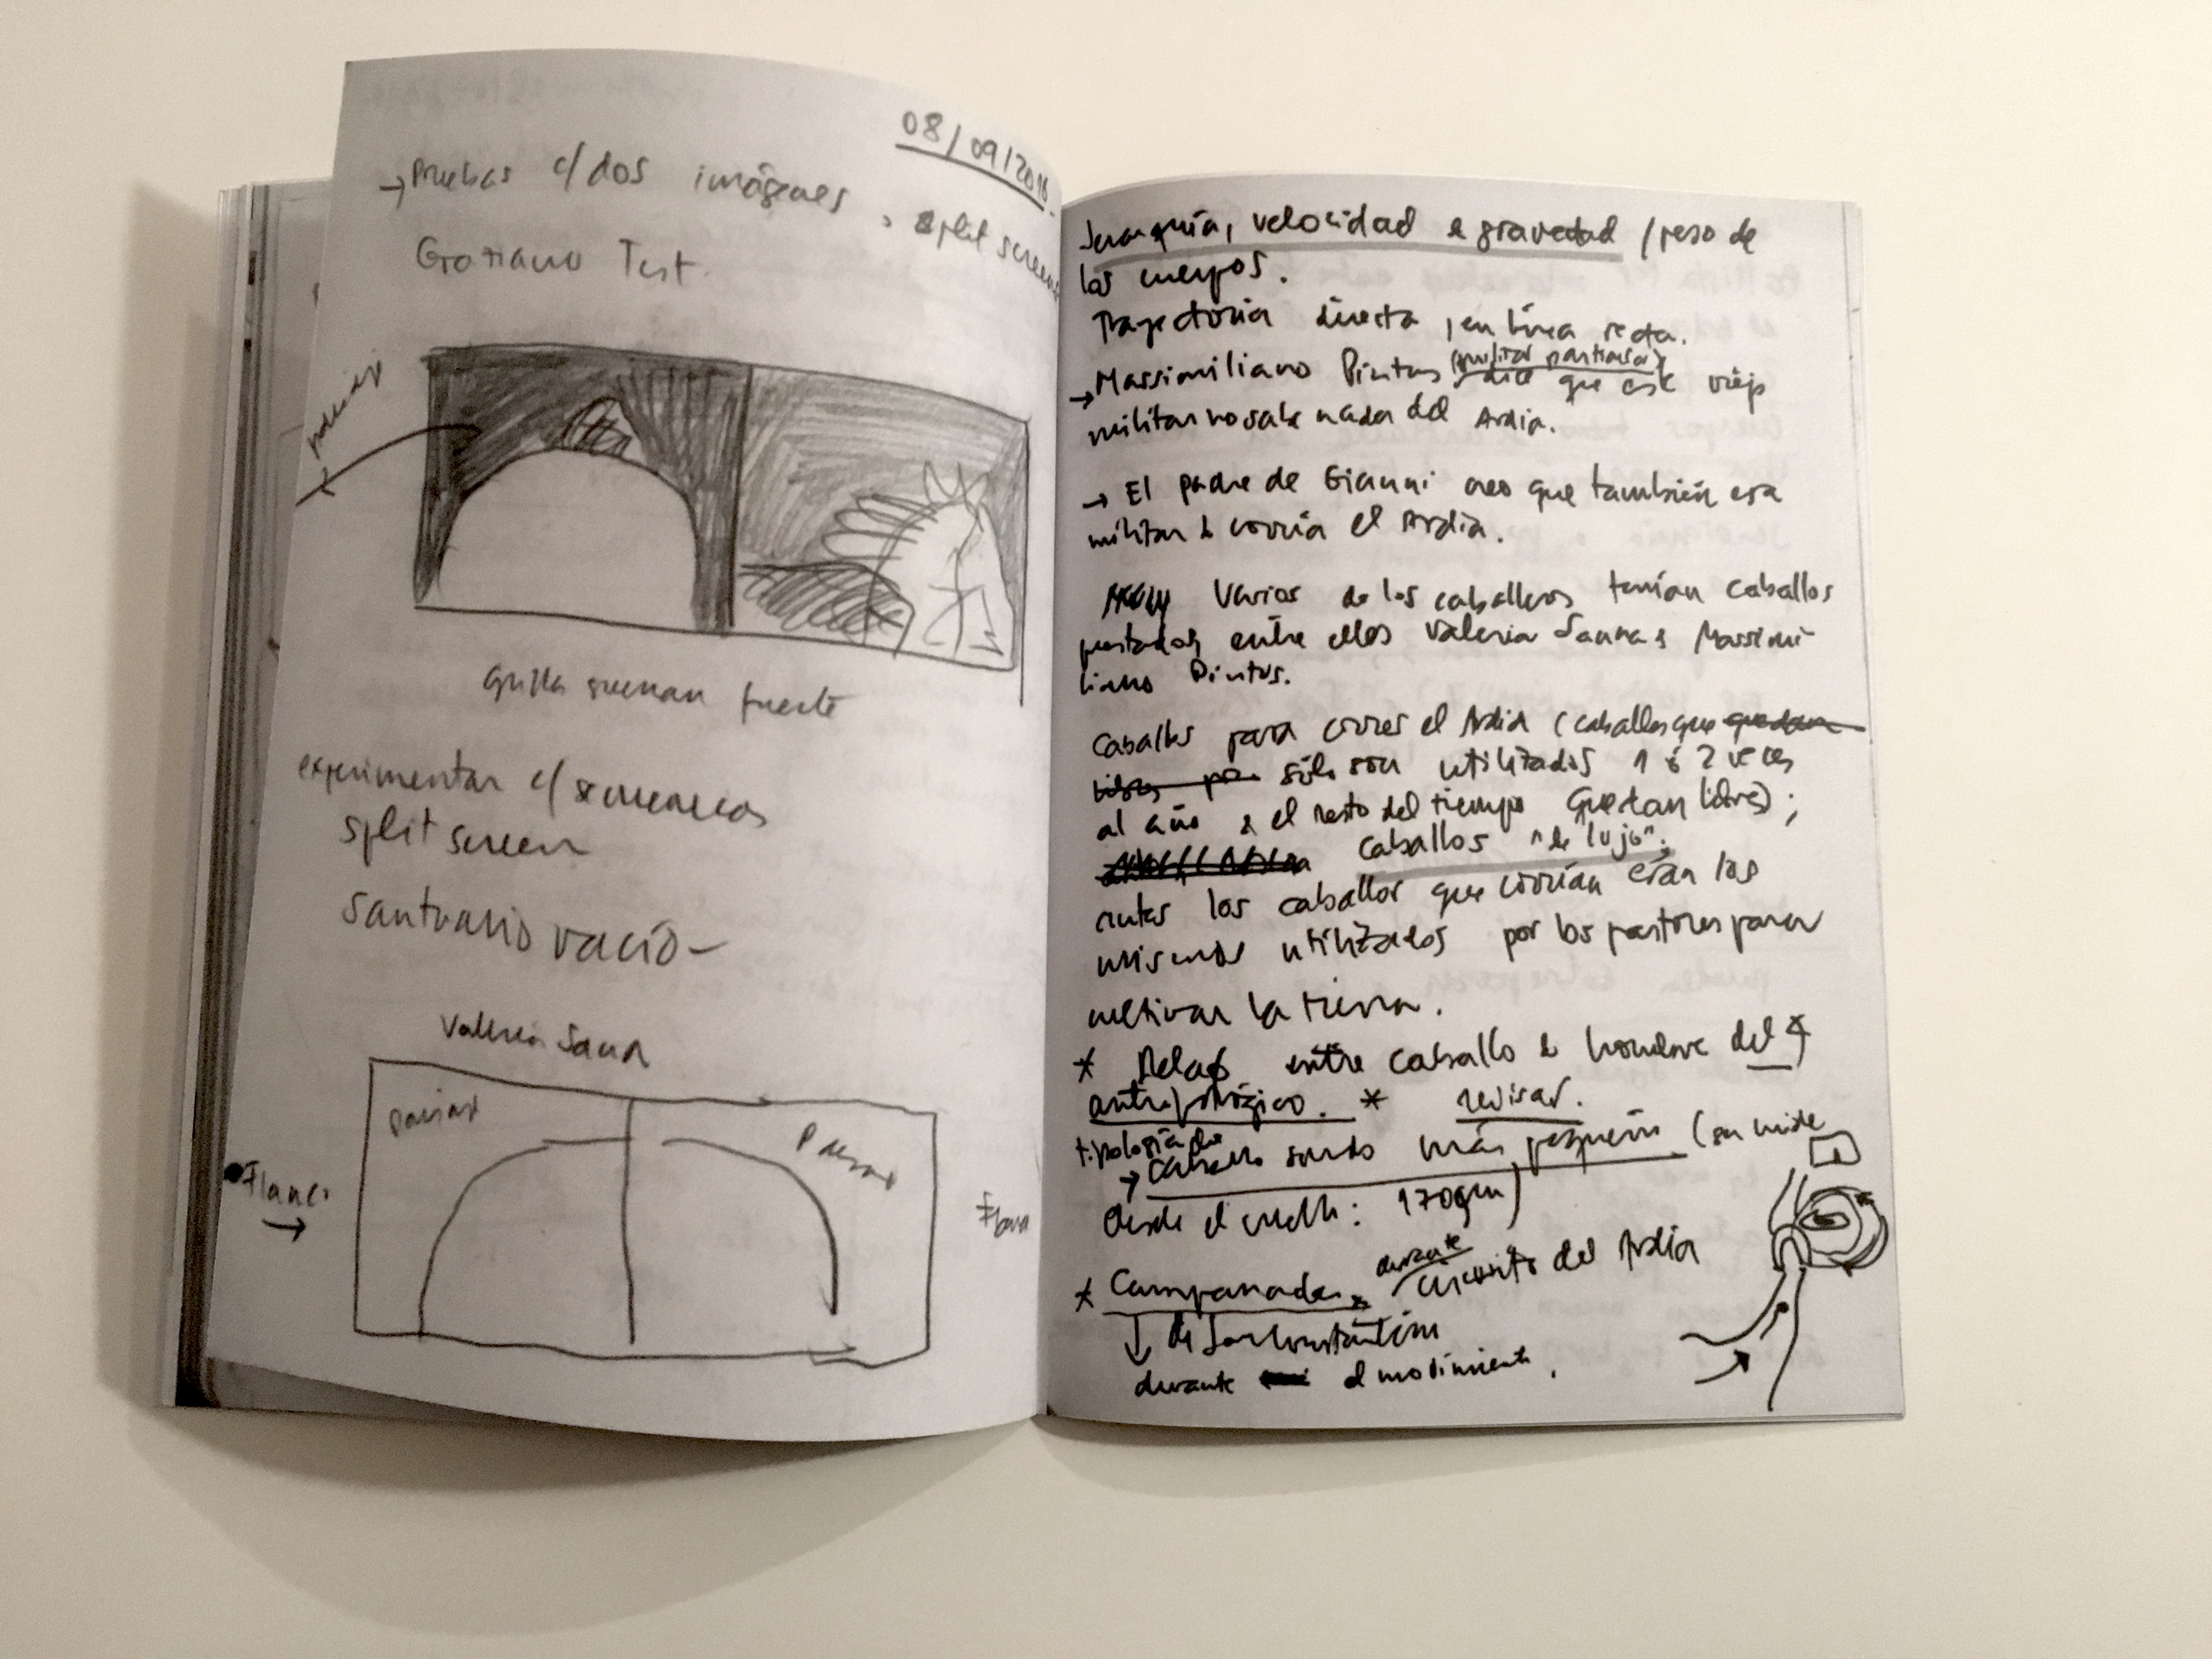 08/09/2016-
→ Pruebas c/ dos imágenes, split screen
Graziano Test.
grilla suenan fuerte
experimentar c/
split screen
santuario vacío -
Valeria Sanna
paisaje
Flanc.
→
Jerarquía, velocidad & gravedad / peso de
los cuerpos.
Trayectoria directa, en línea recta.
→ Massimiliano Pintus (militar) dice que ese viejo
militar no sabe nada del Ardia.
→ El padre de Gianni creo que también era
militar & corría el Ardia.
Varios de los caballeros tenían caballos
prestados entre ellos Valeria Sanna & Massimi-
liano Pintus.
Caballos para correr el Ardia (caballos que quedan
libres sólo son utilizados 1 ó 2 veces
al año & el resto del tiempo quedan libres);
caballos "de lujo";
antes los caballos que corrían eran los
mismos utilizados por los pastores para
cultivar la tierra.
* entre caballo & hombre del
antropológico. * revisar.
tipología de
→ caballo sardo más pequeño (se mide
desde el cuello: 170
durante
* Campanadas circuito del Ardia
↓ de San Constantino
durante el movimiento.